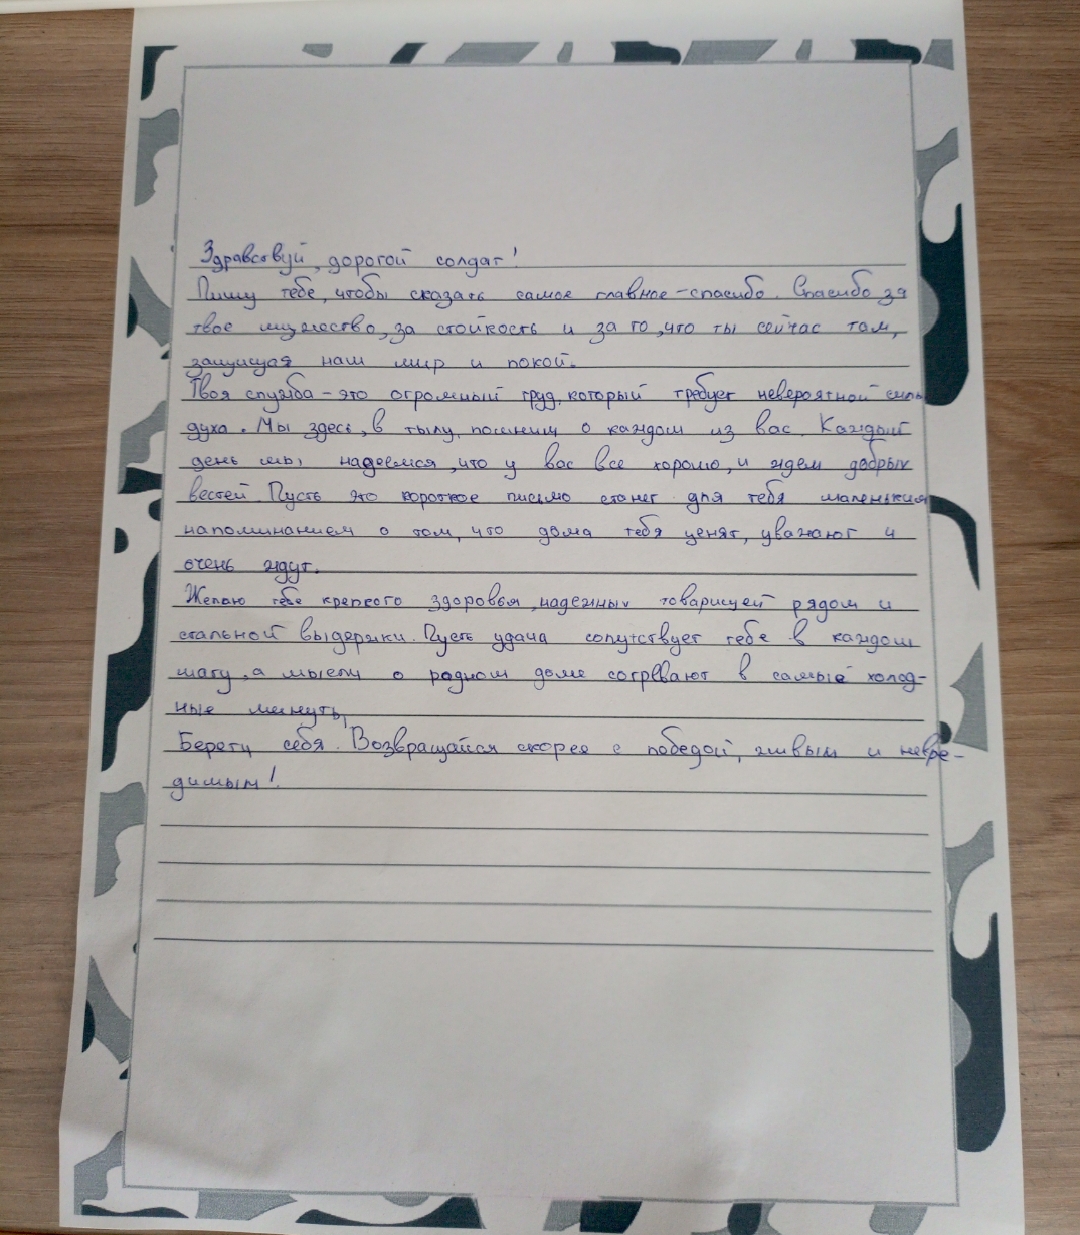 Здравствуй, дорогой солдат!
Пишу тебе, чтобы сказать самое главное - спасибо. Спасибо за
твое мужество, за стойкость и за то, что ты сейчас там,
защищая наш мир и покой.
Твоя служба - это огромный труд, который требует невероятной силы
духа. Мы здесь, в тылу, помним о каждом из вас. Каждый
день мы надеемся, что у вас все хорошо, и ждем добрых
вестей. Пусть это короткое письмо станет для тебя маленьким
напоминанием о том, что дома тебя ценят, уважают и
очень ждут.
Желаю тебе крепкого здоровья, надежных товарищей рядом и
стальной выдержки. Пусть удача сопутствует тебе в каждом
шагу, а мысли о родном доме согревают в самые холод-
ные минуты,
Береги себя. Возвращайся скорее с победой, живым и невре-
димым!